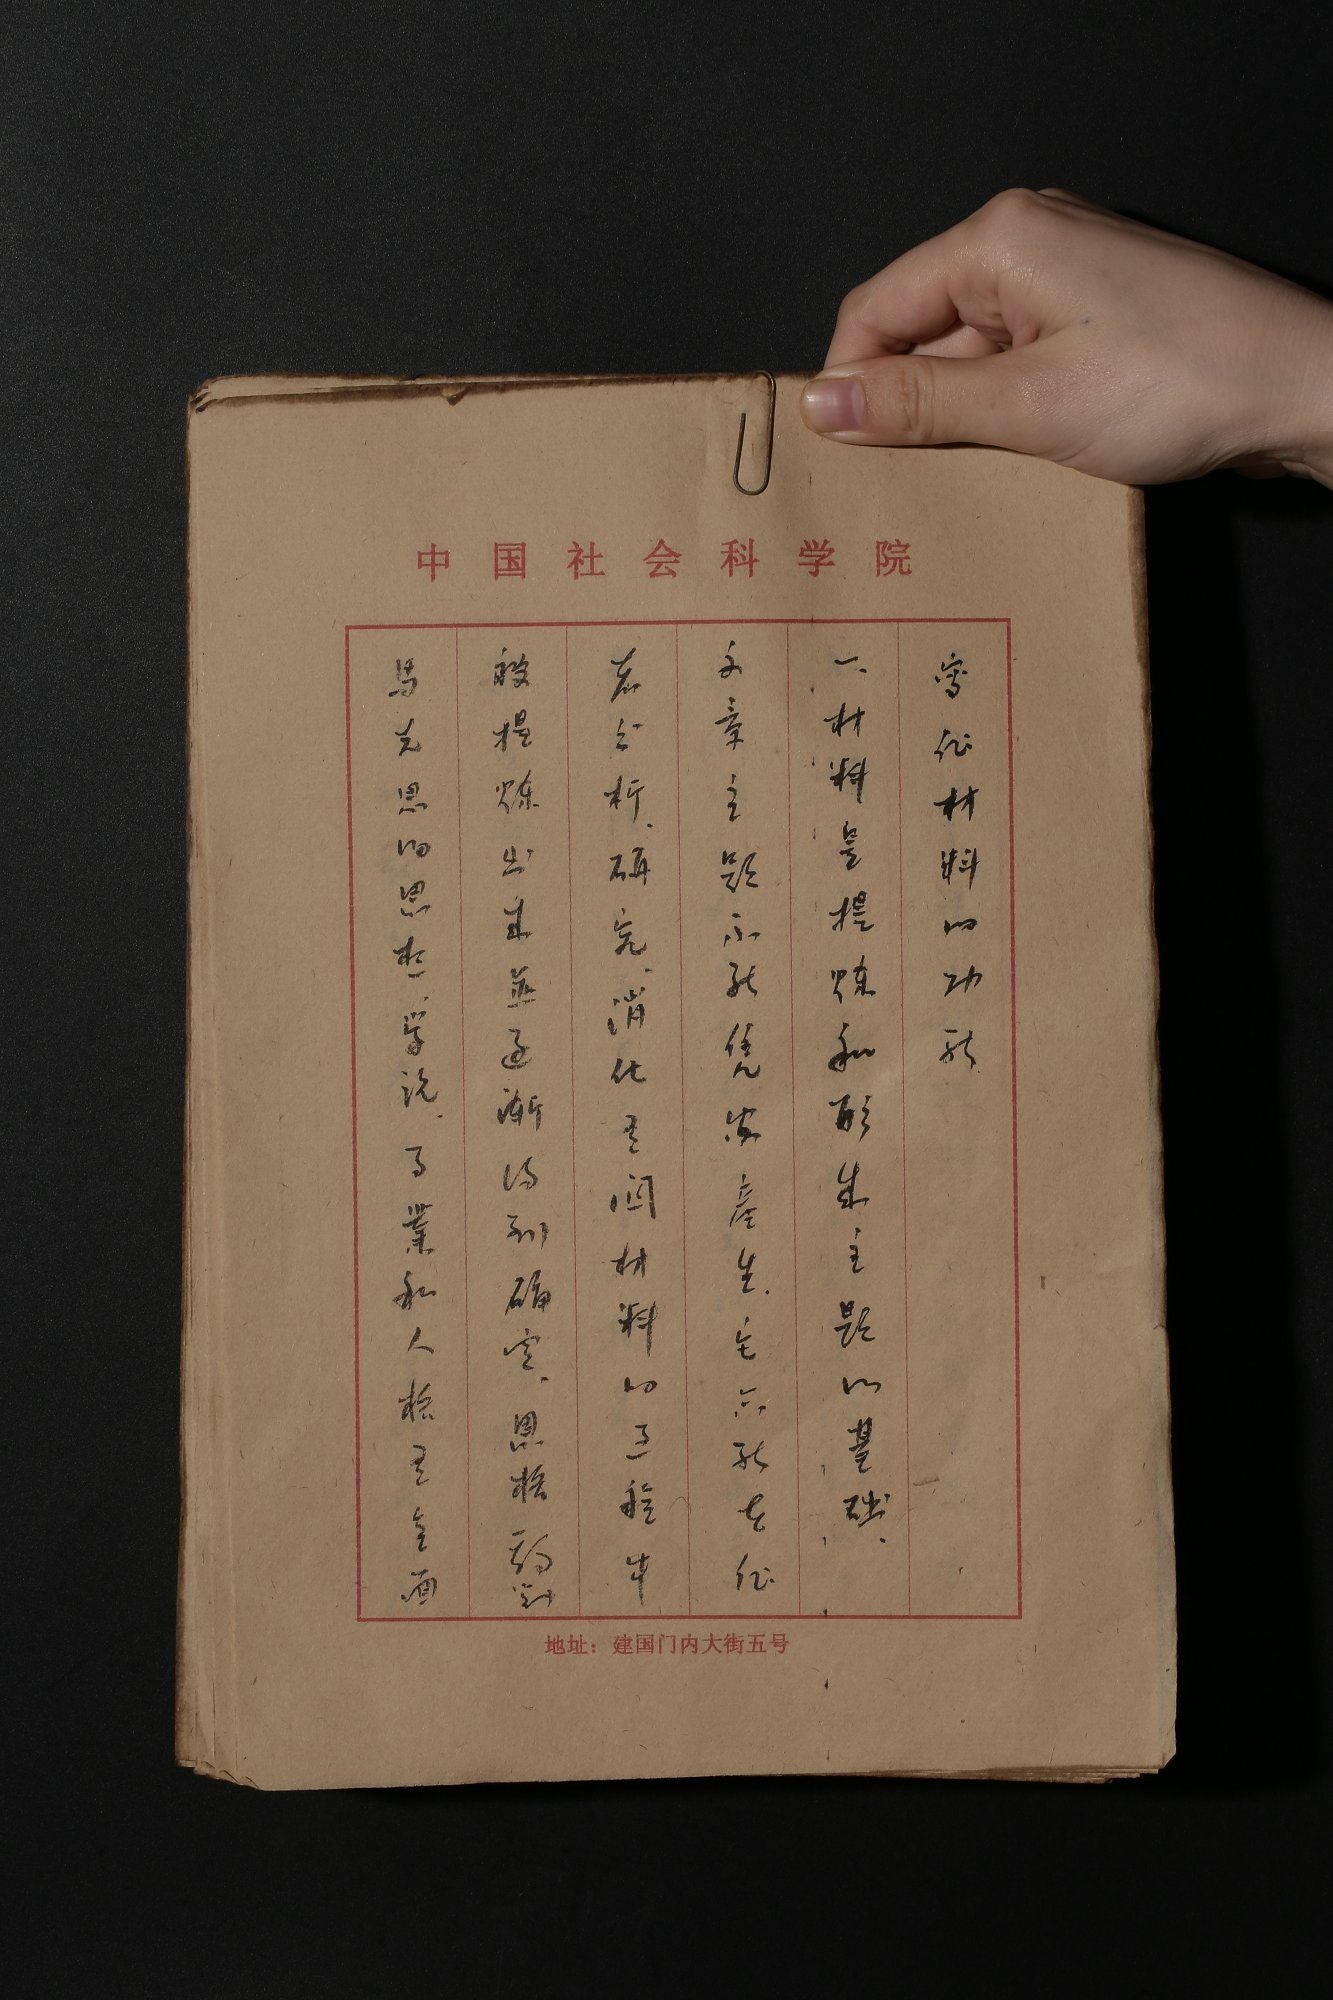 中国社会科学院
寫作材料的功能
一、材料是提煉和形成主題的基礎。
文章主題不能凭空產生，它只能在作
者分析、研究、消化有関材料的过程中
被提煉出来並逐漸得到確定。恩格斯对
馬克思的思想、学説、事業和人格有全面
地址：建国门内大街五号